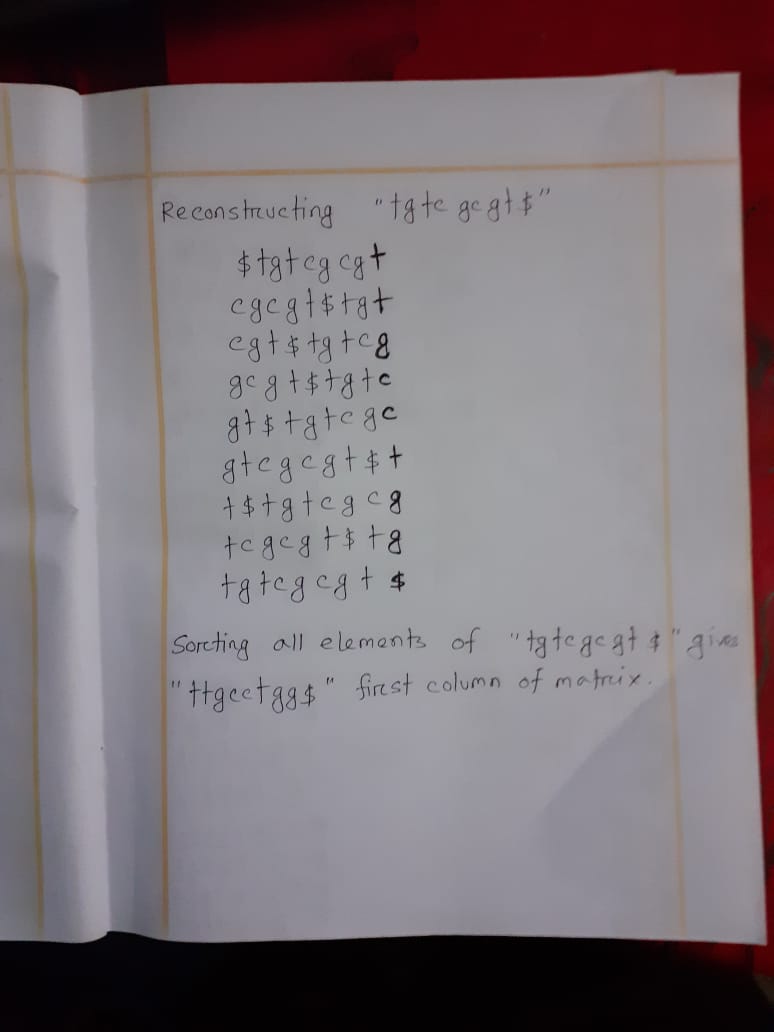 Reconstructing "tgtc gcgt$"
$tgtcgcgt
cgcgt$tgt
cgt$tgtcg
gcgt$tgtc
gt$tgtcgc
gtcgcgt$t
t$tgtcgcg
tcgcgt$tg
tgtcgcgt$
Sorcting all elements of "tgtcgcgt$" gives
"ttgcctgg$" first column of matrix.